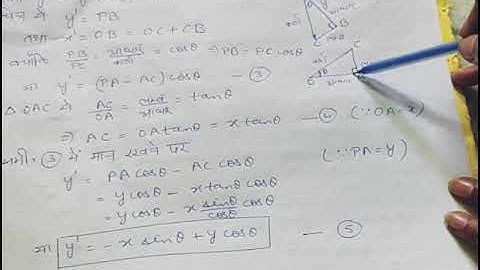 y' = PB
तथा x' = OB = OC + CB
क्योंकि PB/PC = आधार/कर्ण = cosθ ⇒ PB = PC cosθ
या y' = (PA - AC) cosθ — ③
△ OAC से AC/OA = लम्ब/आधार = tanθ
⇒ AC = OA tanθ = x tanθ — ④ (∵ OA = x)
समी. ③ में मान रखने पर
y' = PA cosθ - AC cosθ (∵ PA = y)
= y cosθ - x tanθ cosθ
= y cosθ - x sinθ/cosθ cosθ
या y' = - x sinθ + y cosθ — ⑤
θ
आधार
कर्ण
B
C
C
कर्ण
θ
O
आधार